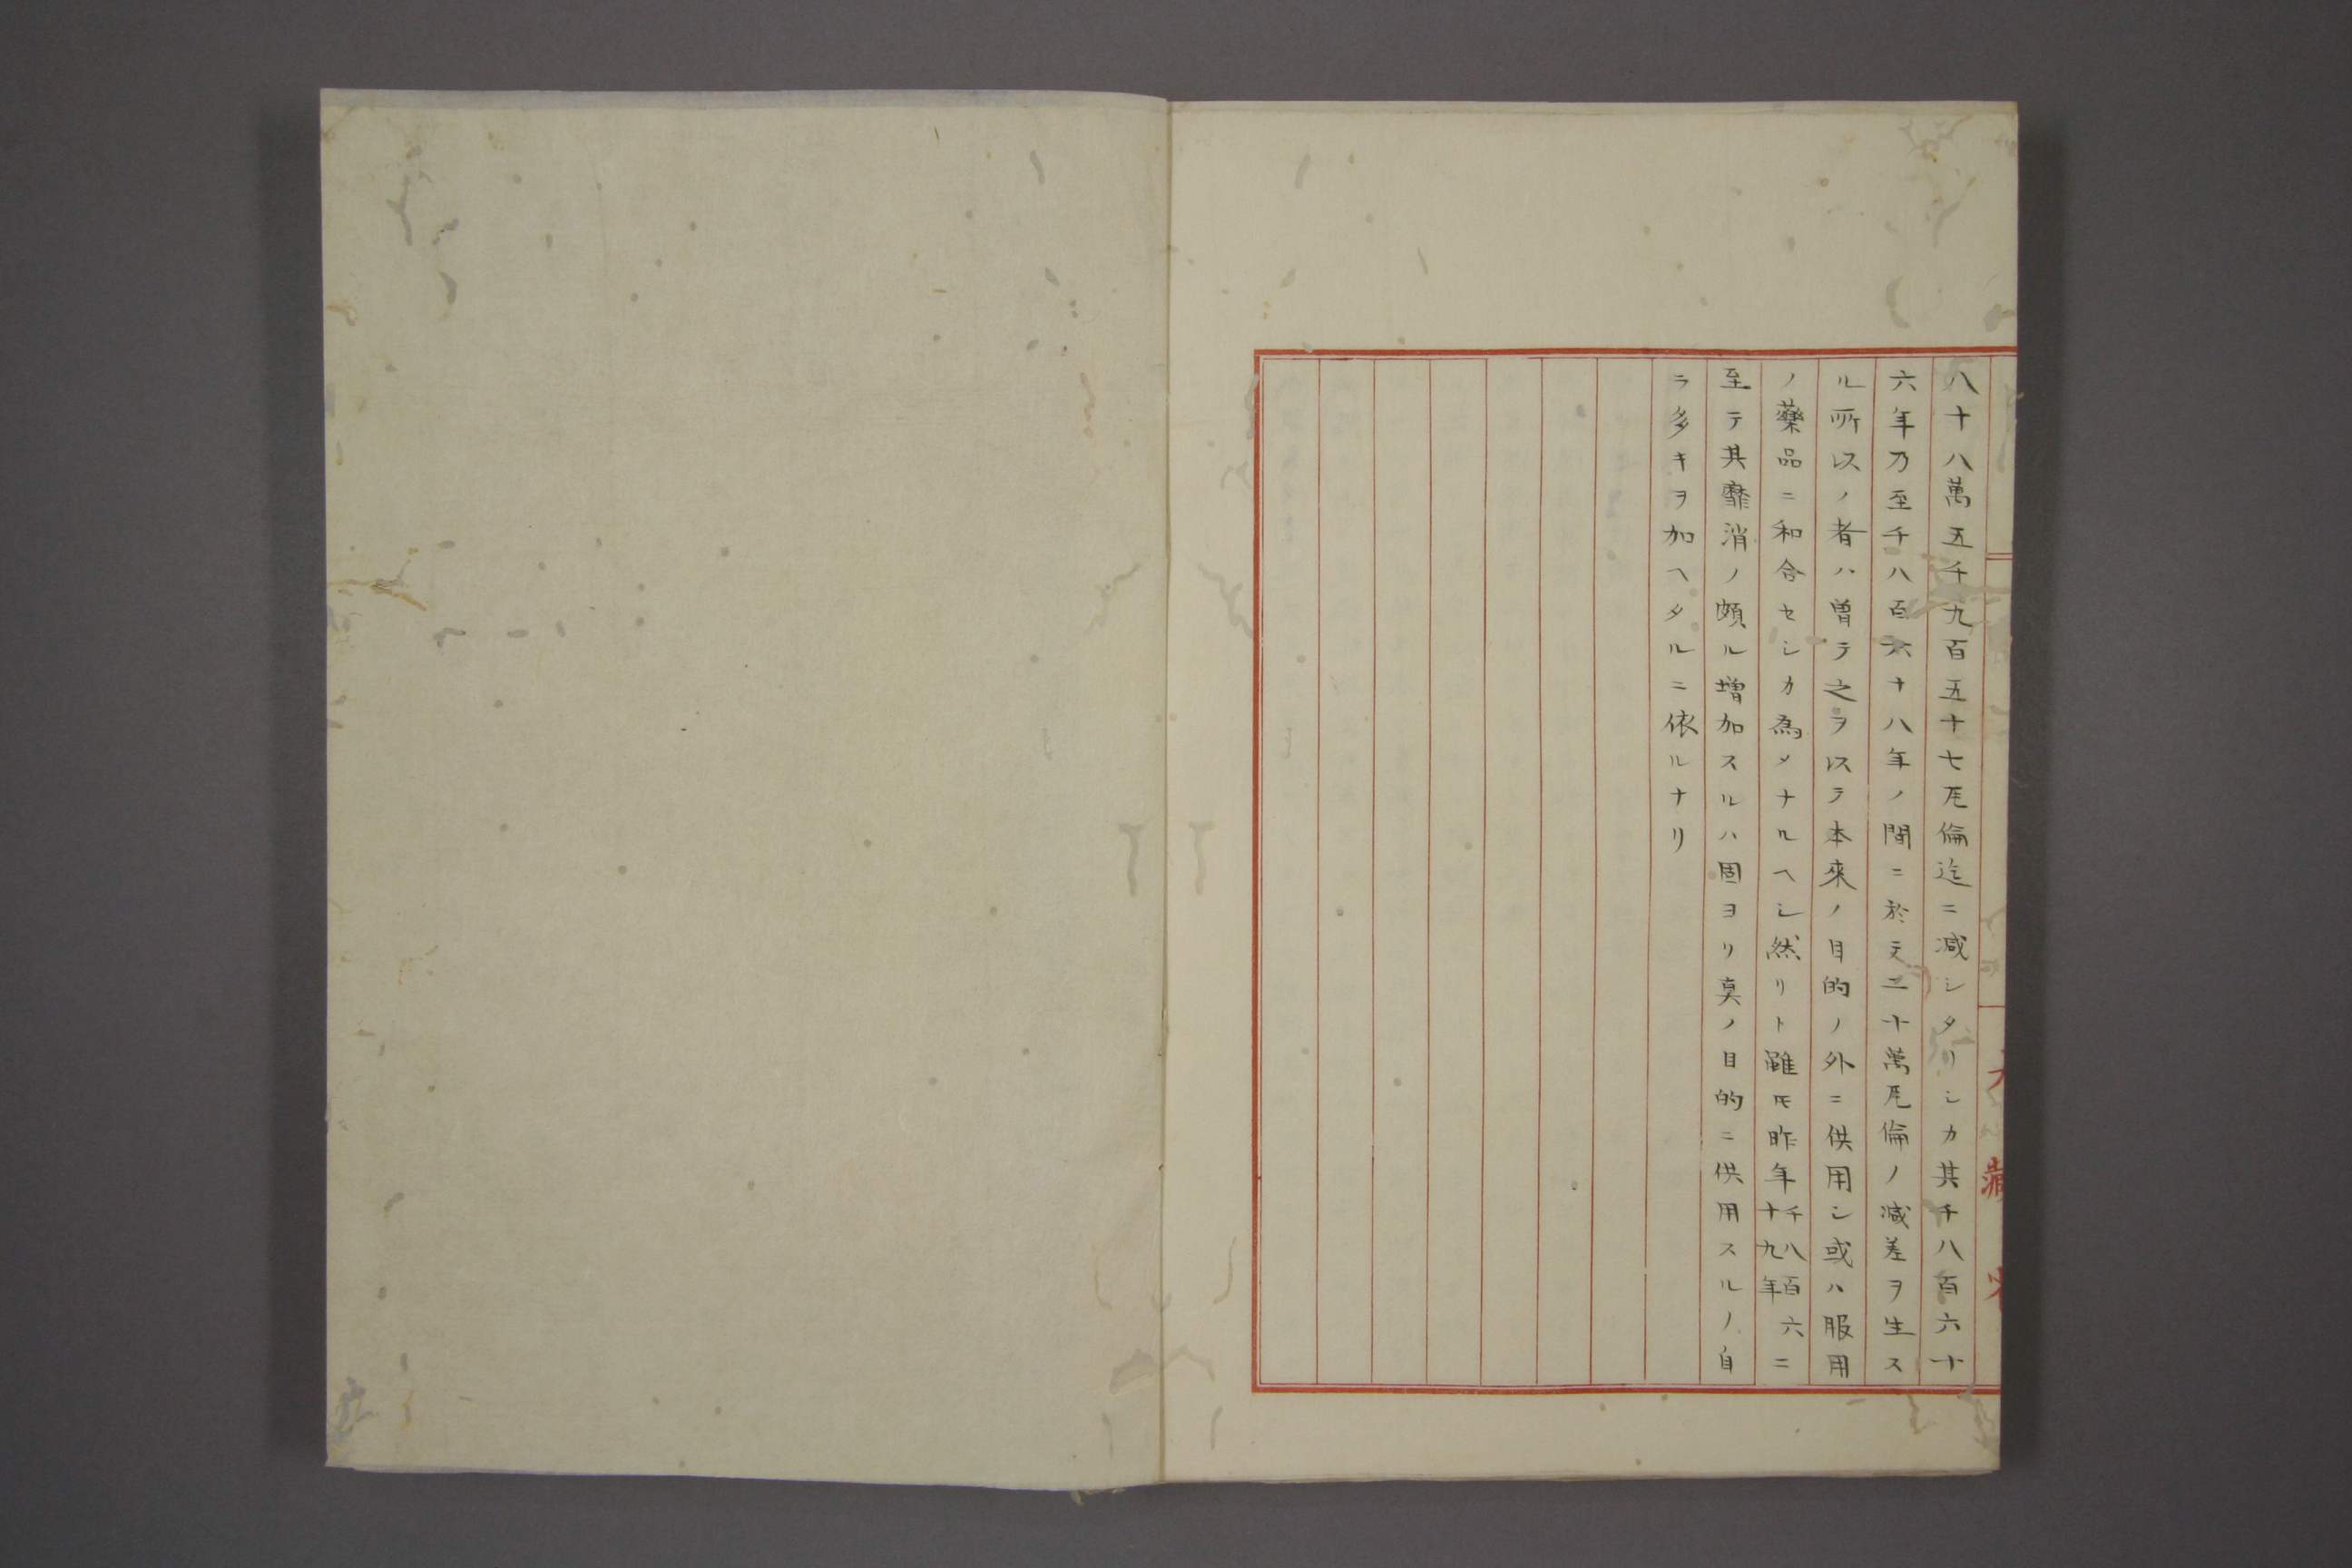 八十八萬五千九百五十七瓦倫迄ニ减シタリシカ其千八百六十
六年乃至千八百六十八年ノ間ニ於テ二十萬瓦倫ノ减差ヲ生ス
ル所以ノ者ハ曽テ之ヲ以テ本來ノ目的ノ外ニ供用シ或ハ服用
ノ藥品ニ和合セシカ為メナルヘシ然リト雖𪜈昨年千八百六十九年ニ
至テ其靡消ノ頗ル増加スルハ固ヨリ真ノ目的ニ供用スルノ自
ラ多キヲ加ヘタルニ依ルナリ
大藏省